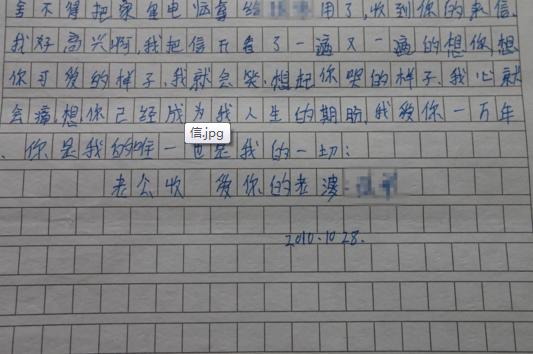 舍不得把家里电脑寄给用了,收到你的来信.
我好高兴啊,我把信看了一遍又一遍的想你,想
你可爱的样子,我就会笑,想起你哭的样子,我心就
会痛,想你已经成为我人生的期盼,我爱你一万年
、你是我的唯一也是我的一切:
信.jpg
老公收 爱你的老婆:
2010.10.28.